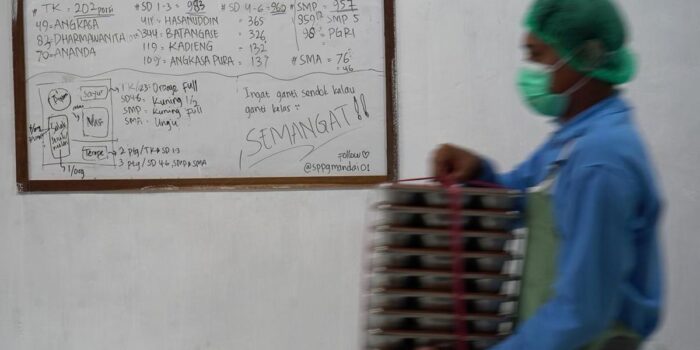 # TK : 202 porsi
49 = ANGKASA
82 = DHARMAWANITA
70 = ANANDA
# SD 1-3 = 983 # SD 4-6 = 960
411 = HASANUDDIN = 365
344 = BATANGASE = 326
119 = KADIENG = 132
109 = ANGKASA PURA = 137
# SMP = 957
859 SMP 5
98 = PGRI
# SMA = 76
46
Sayur
Nasi
Tempe
1 K/2S : Orange Full
SD46 = Kuning 1/2
SMP = Kuning Full
SMA = Ungu
2 ptg/TK + SD 1-3
3 ptg/SD 4-6, SMP & SMA
Ingat ganti sendok kalau
ganti kelas
SEMANGAT!!
Follow ♡
@sppgmandai01